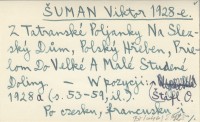 ŠUMAN Viktor 1928-c.
Z Tatranské Poljanky Na Slez-
ský Dům, Polský Hřeben, Prie-
lom Do Velké A Malé Studené
Doliny. — W pozycji:
1928a (s. 53-59, il.) (Štáfl O.
Po czesku, francusku